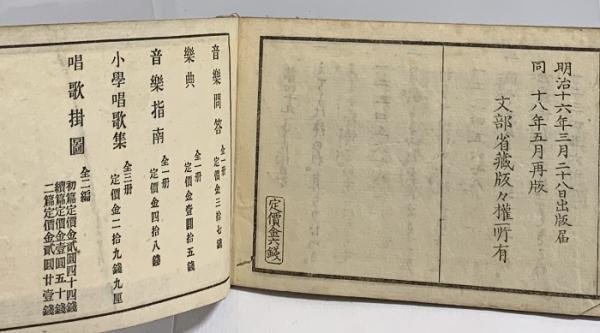 明治十六年三月二十八日出版届
同 十八年五月再版
文部省藏版々權所有
定價金六錢
音樂問答 全一册 定價金三拾七錢
樂典 全一册 定價金壹圓拾五錢
音樂指南 全一册 定價金四拾八錢
小學唱歌集 全三册 定價金二拾九錢九厘
唱歌掛圖 全二編
初篇定價金貳圓四十四錢
續篇定價金壹圓五十錢
二篇定價金貳圓廿壹錢